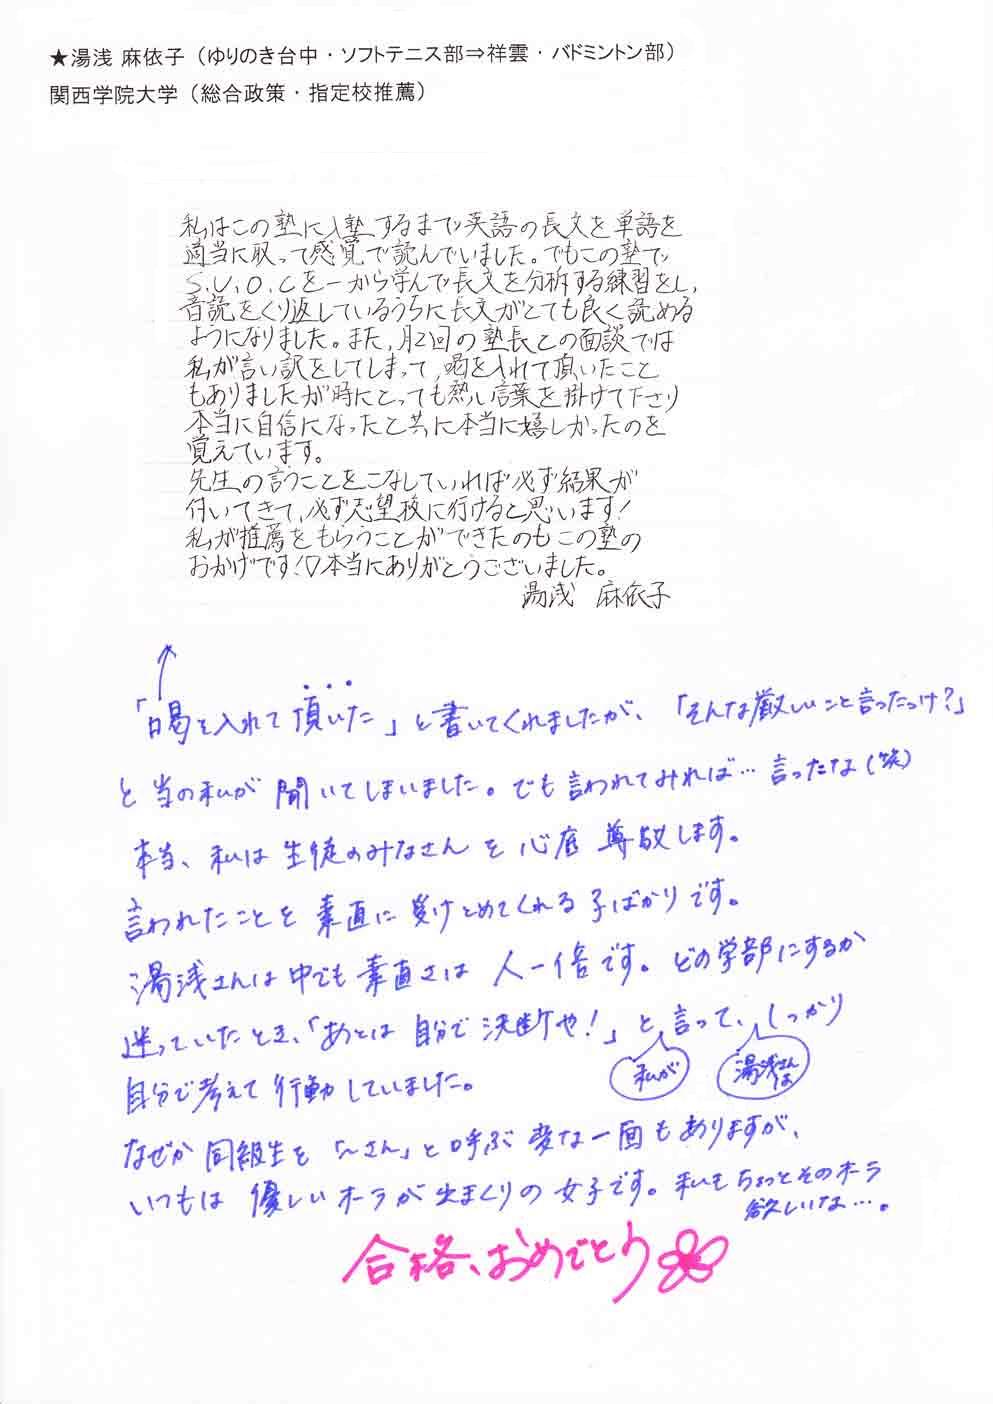 ★湯浅 麻依子（ゆりのき台中・ソフトテニス部⇒祥雲・バドミントン部）
関西学院大学（総合政策・指定校推薦）
私はこの塾に入塾するまで英語の長文を単語を
適当に取って感覚で読んでいました。でもこの塾で
S.V.O.Cを一から学んで長文を分析する練習をし、
音読をくり返しているうちに長文がとても良く読める
ようになりました。また、月2回の塾長との面談では
私が言い訳をしてしまって、喝を入れて頂いたこと
もありましたが時にとっても熱い言葉を掛けて下さり
本当に自信になったと共に本当に嬉しかったのを
覚えています。
先生の言うことをこなしていれば必ず結果が
付いてきて、必ず志望校に行けると思います!
私が推薦をもらうことができたのもこの塾の
おかげです!♡本当にありがとうございました。
湯浅 麻依子
「喝を入れて頂いた」と書いてくれましたが、「そんな厳しいこと言ったっけ?」
と当の私が聞いてしまいました。でも言われてみれば…言ったな(笑)
本当、私は生徒のみなさんを心底尊敬します。
言われたことを素直に受けとめてくれる子ばかりです。
湯浅さんは中でも素直さは人一倍です。どの学部にするか
迷っていたとき、「あとは自分で決断や!」と言って、しっかり
私が 湯浅さんは
自分で考えて行動していました。
なぜか同級生を「〜さん」と呼ぶ変な一面もありますが、
いつもは優しいオーラが出まくりの女子です。私もちょっとそのオーラ
欲しいな…。
合格、おめでとう